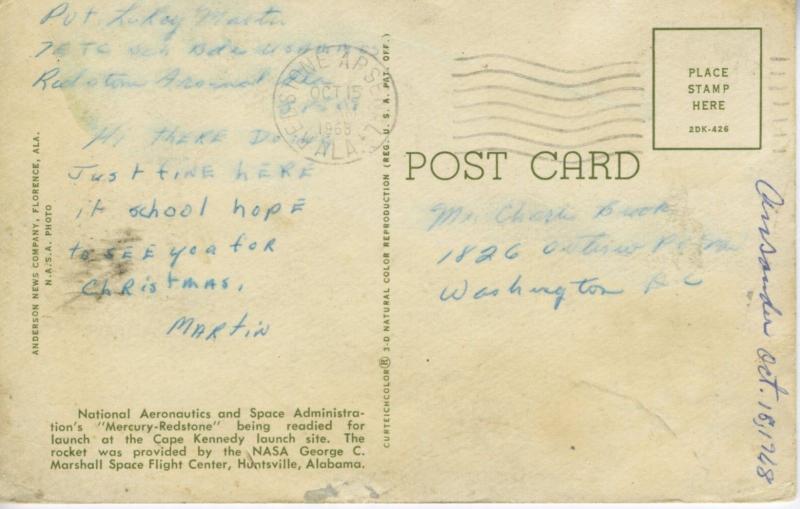 Pvt. Martin
Redstone Arsenal Ala
Hi THERE Doing
Just fine HERE
it school hope
to SEE you foR
ChRistmas,
MARTiN
REDSTONE ARSENAL
OCT 15
1968
ALA.
PLACE
STAMP
HERE
2DK-426
POST CARD
Mr.
1826
Washington D C
Oct. 18, 1968
ANDERSON NEWS COMPANY, FLORENCE, ALA.
N.A.S.A. PHOTO
CURTEICHCOLOR® 3-D NATURAL COLOR REPRODUCTION (REG. U. S. A. PAT. OFF.)
National Aeronautics and Space Administra-
tion's "Mercury-Redstone" being readied for
launch at the Cape Kennedy launch site. The
rocket was provided by the NASA George C.
Marshall Space Flight Center, Huntsville, Alabama.